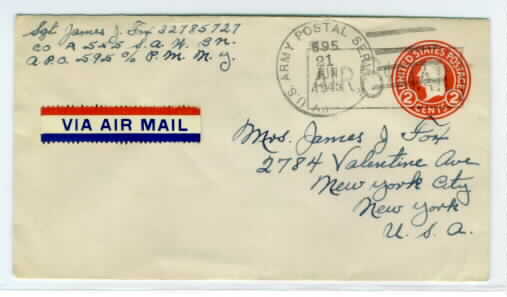 Sgt. James J. Fox 32785727
Co A 555 S.A.W. Bn.
A.P.O. 595 c/o P.M. N.Y.
U.S. ARMY POSTAL SERVICE
595
21
JUN
1945
UNITED STATES POSTAGE
2 CENTS 2
VIA AIR MAIL
Mrs. James J Fox
2784 Valentine Ave
New York City
New York
U.S.A.